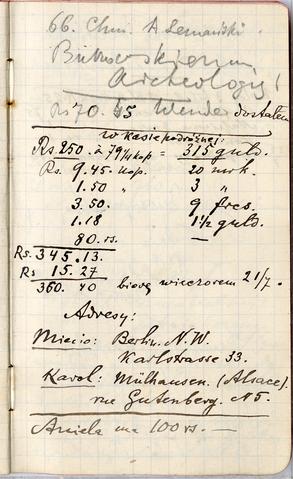 66. Chm. A. Lemański.
Archeologij!
Rs 70. 45 dostałem
w kasie podróżnej:
Rs. 250. à 79 1/4 kop = 315 guld.
Rs. 9.45 kop. 20 mrk.
1.50 " 3 "
3.50. 9 frcs.
1.18 1 1/2 guld.
80. rs. —
Rs. 345.13.
Rs 15.27
360. 40 biorę wieczorem 21/7.
Adresy:
Miecio: Berlin. N.W.
Karlstrasse 33.
Karol: Mülhausen. (Alsace).
rue Gutenberg. N 5.
Aniela ma 100 rs. —